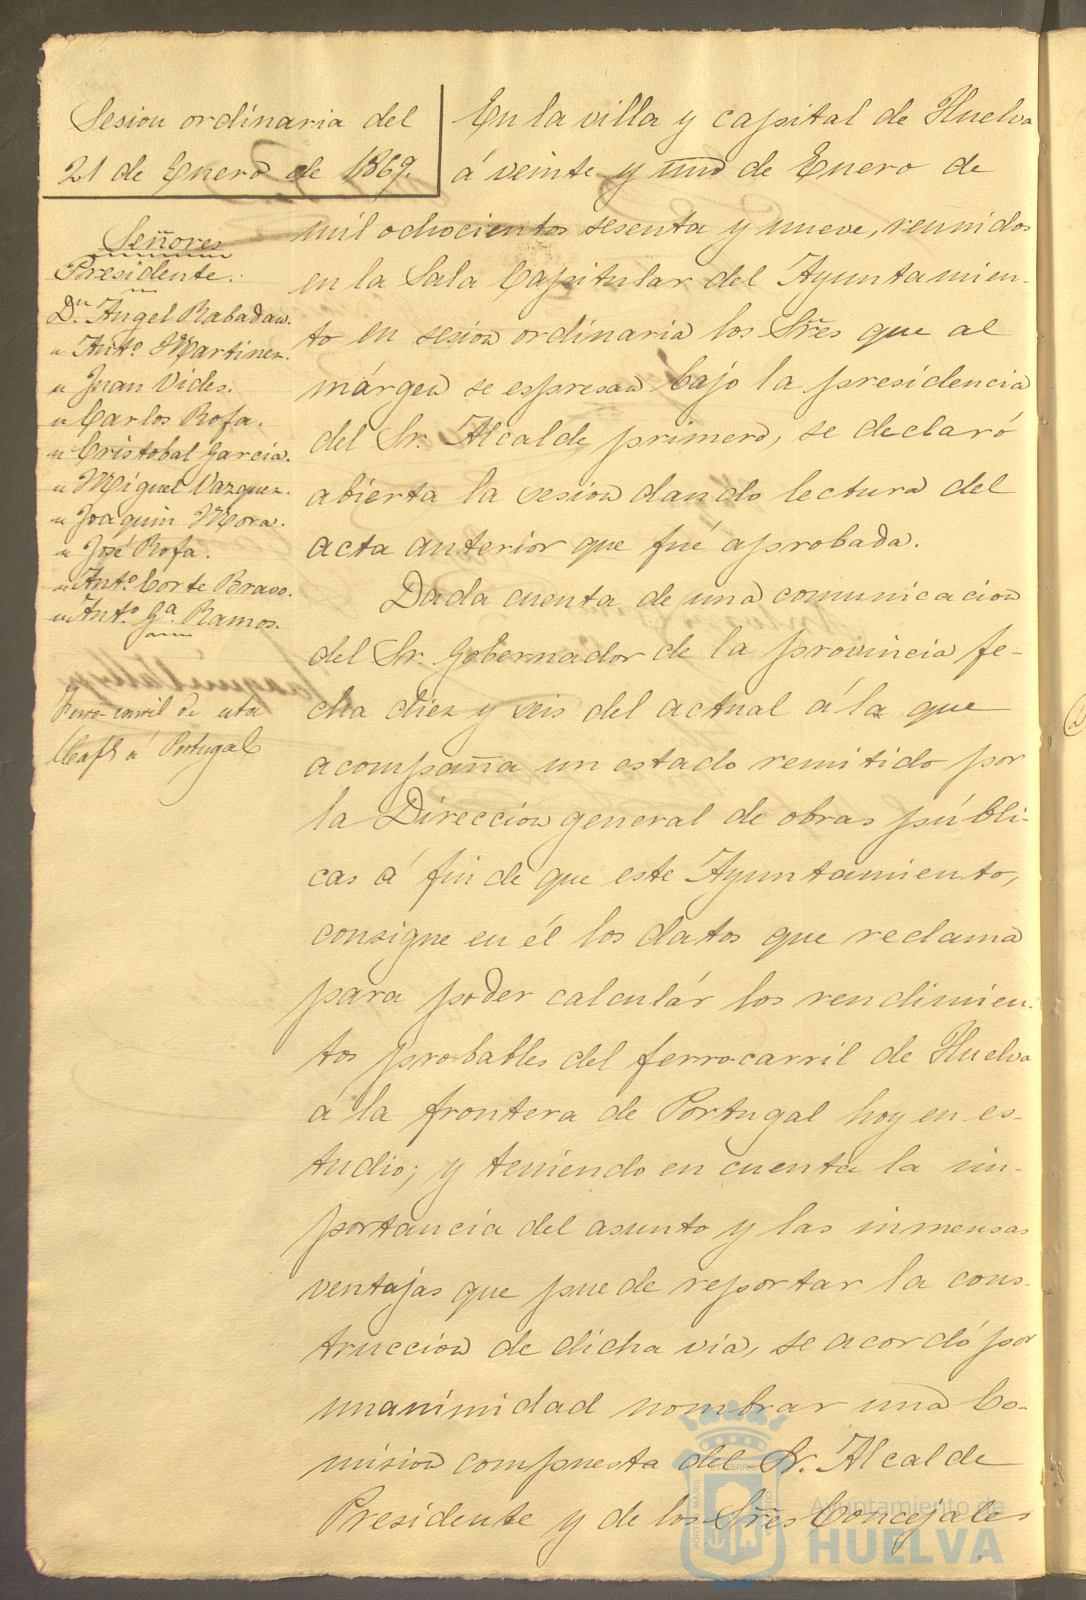 Sesion ordinaria del
21 de Enero de 1869.
Señores
Presidente.
Dn. Angel Rabadan.
" Anto. Martinez.
" Juan Vides.
" Carlos Rofa.
" Cristobal Garcia.
" Miguel Vazquez.
" Joaquin Mora.
" José Rofa.
" Anto. Corte Bravo.
" Anto. Ga. Ramos.
Ferro-carril de esta
Capl. a Portugal
En la villa y capital de Huelva
á veinte y uno de Enero de
mil ochocientos sesenta y nueve, reunidos
en la Sala Capitular del Ayuntamien-
to en sesion ordinaria los Sres que al
márgen se espresan bajo la presidencia
del Sr. Alcalde primero, se declaró
abierta la sesion dando lectura del
acta anterior que fué aprobada.
Dada cuenta de una comunicacion
del Sr. Gobernador de la provincia fe-
cha diez y seis del actual á la que
acompaña un estado remitido por
la Direccion general de obras públi-
cas á fin de que este Ayuntamiento,
consigne en él los datos que reclama
para poder calculár los rendimien-
tos probables del ferro-carril de Huelva
á la frontera de Portugal hoy en es-
tudio; y teniendo en cuenta la im-
portancia del asunto y las inmensas
ventajas que puede reportar la cons-
truccion de dicha via, se acordó por
unanimidad nombrar una Co-
mision compuesta del Sr. Alcalde
Presidente y de los Sres Concejales
Ayuntamiento de
HUELVA